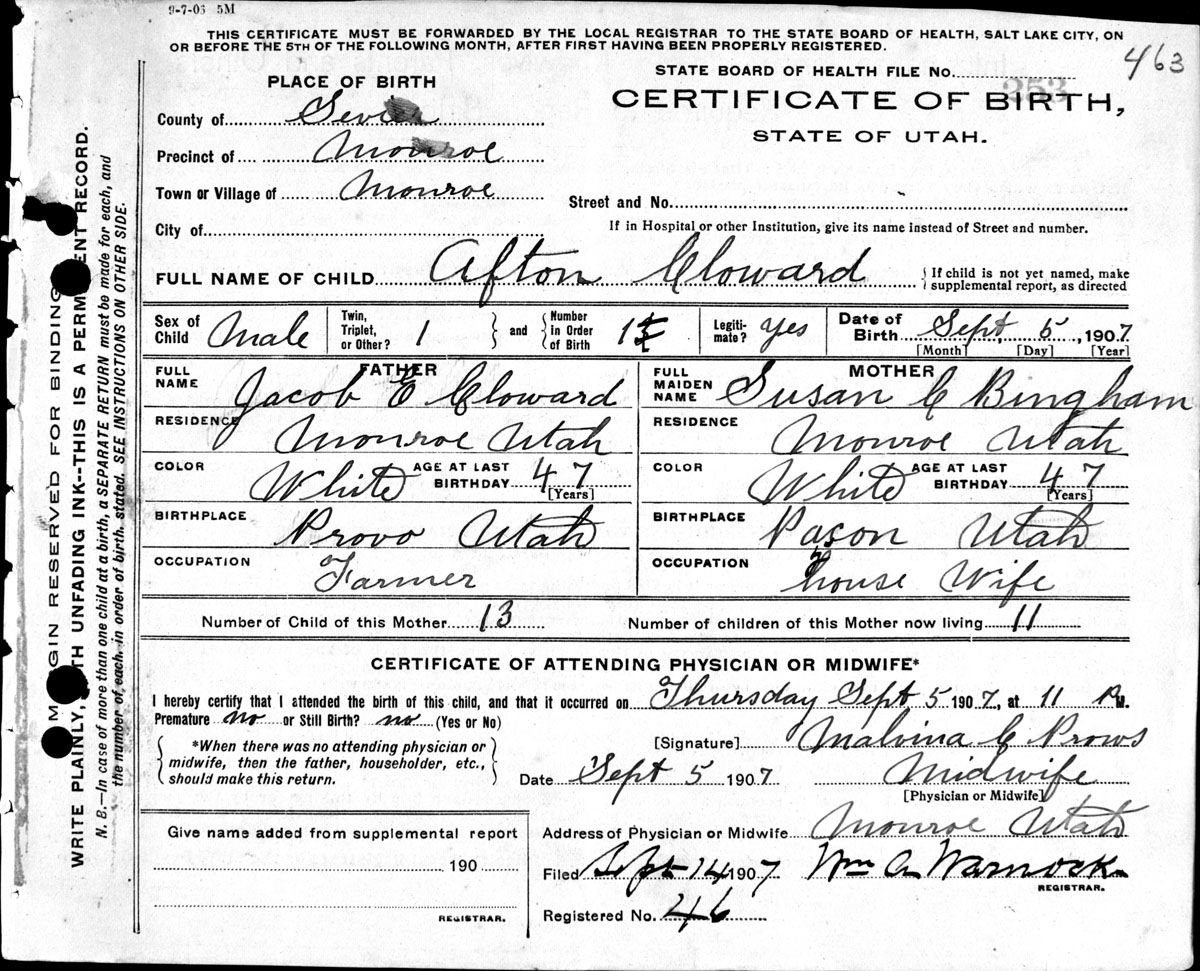 9-7-06 5M
THIS CERTIFICATE MUST BE FORWARDED BY THE LOCAL REGISTRAR TO THE STATE BOARD OF HEALTH, SALT LAKE CITY, ON
OR BEFORE THE 5TH OF THE FOLLOWING MONTH, AFTER FIRST HAVING BEEN PROPERLY REGISTERED.
463
STATE BOARD OF HEALTH FILE No. 353
CERTIFICATE OF BIRTH,
STATE OF UTAH.
PLACE OF BIRTH
County of Sevier
Precinct of Monroe
Town or Village of Monroe
City of
Street and No.
If in Hospital or other Institution, give its name instead of Street and number.
FULL NAME OF CHILD Afton Cloward
{ If child is not yet named, make
supplemental report, as directed
Sex of Child Male
Twin, Triplet, or Other? 1 } and { Number in Order of Birth 1
Legiti-mate? yes
Date of Birth Sept, 5, 1907.
[Month] [Day] [Year]
FATHER
FULL NAME Jacob E Cloward
RESIDENCE Monroe Utah
COLOR White AGE AT LAST BIRTHDAY 47
[Years]
BIRTHPLACE Provo Utah
OCCUPATION Farmer
MOTHER
FULL MAIDEN NAME Susan C Bingham
RESIDENCE Monroe Utah
COLOR White AGE AT LAST BIRTHDAY 47
[Years]
BIRTHPLACE Pason Utah
OCCUPATION house Wife
Number of Child of this Mother 13 Number of children of this Mother now living 11
CERTIFICATE OF ATTENDING PHYSICIAN OR MIDWIFE*
I hereby certify that I attended the birth of this child, and that it occurred on Thursday Sept 5 1907, at 11 M.
Premature no or Still Birth? no (Yes or No)
{ *When there was no attending physician or
midwife, then the father, householder, etc.,
should make this return. }
[Signature] Malvina C Prows
Date Sept 5 1907 Midwife
[Physician or Midwife]
Address of Physician or Midwife Monroe Utah
Filed Sept 14 1907 Wm A Warnock
REGISTRAR.
Registered No. 46
Give name added from supplemental report
190
REGISTRAR.
MARGIN RESERVED FOR BINDING
WRITE PLAINLY, WITH UNFADING INK--THIS IS A PERMANENT RECORD.
N. B.—In case of more than one child at a birth, a SEPARATE RETURN must be made for each, and
the number of each, in order of birth, stated. SEE INSTRUCTIONS ON OTHER SIDE.